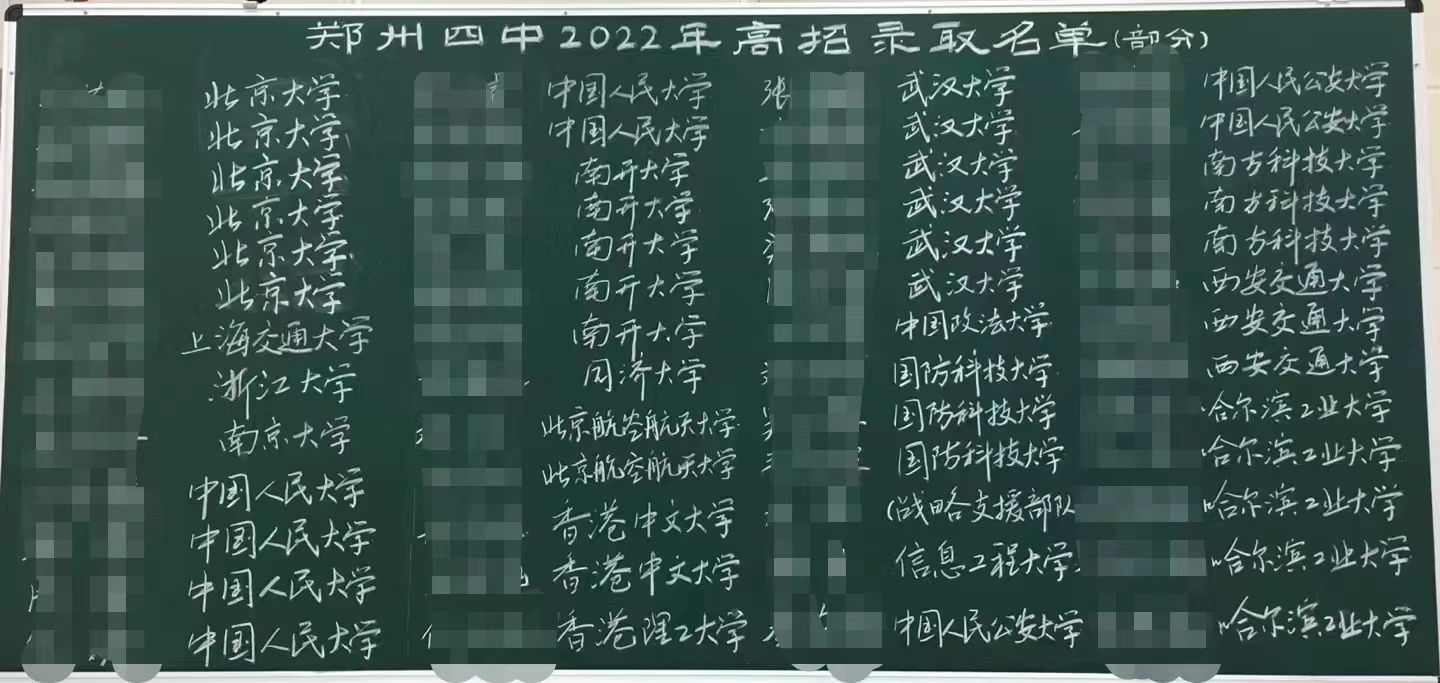 郑州四中2022年高招录取名单(部分)
北京大学 中国人民大学 张 武汉大学 中国人民公安大学
北京大学 中国人民大学 武汉大学 中国人民公安大学
北京大学 南开大学 武汉大学 南方科技大学
北京大学 南开大学 武汉大学 南方科技大学
北京大学 南开大学 武汉大学 南方科技大学
北京大学 南开大学 武汉大学 西安交通大学
上海交通大学 南开大学 中国政法大学 西安交通大学
浙江大学 同济大学 国防科技大学 西安交通大学
南京大学 北京航空航天大学 国防科技大学 哈尔滨工业大学
中国人民大学 北京航空航天大学 国防科技大学 哈尔滨工业大学
中国人民大学 香港中文大学 (战略支援部队 哈尔滨工业大学
中国人民大学 香港中文大学 信息工程大学 哈尔滨工业大学
中国人民大学 香港理工大学 中国人民公安大学 哈尔滨工业大学